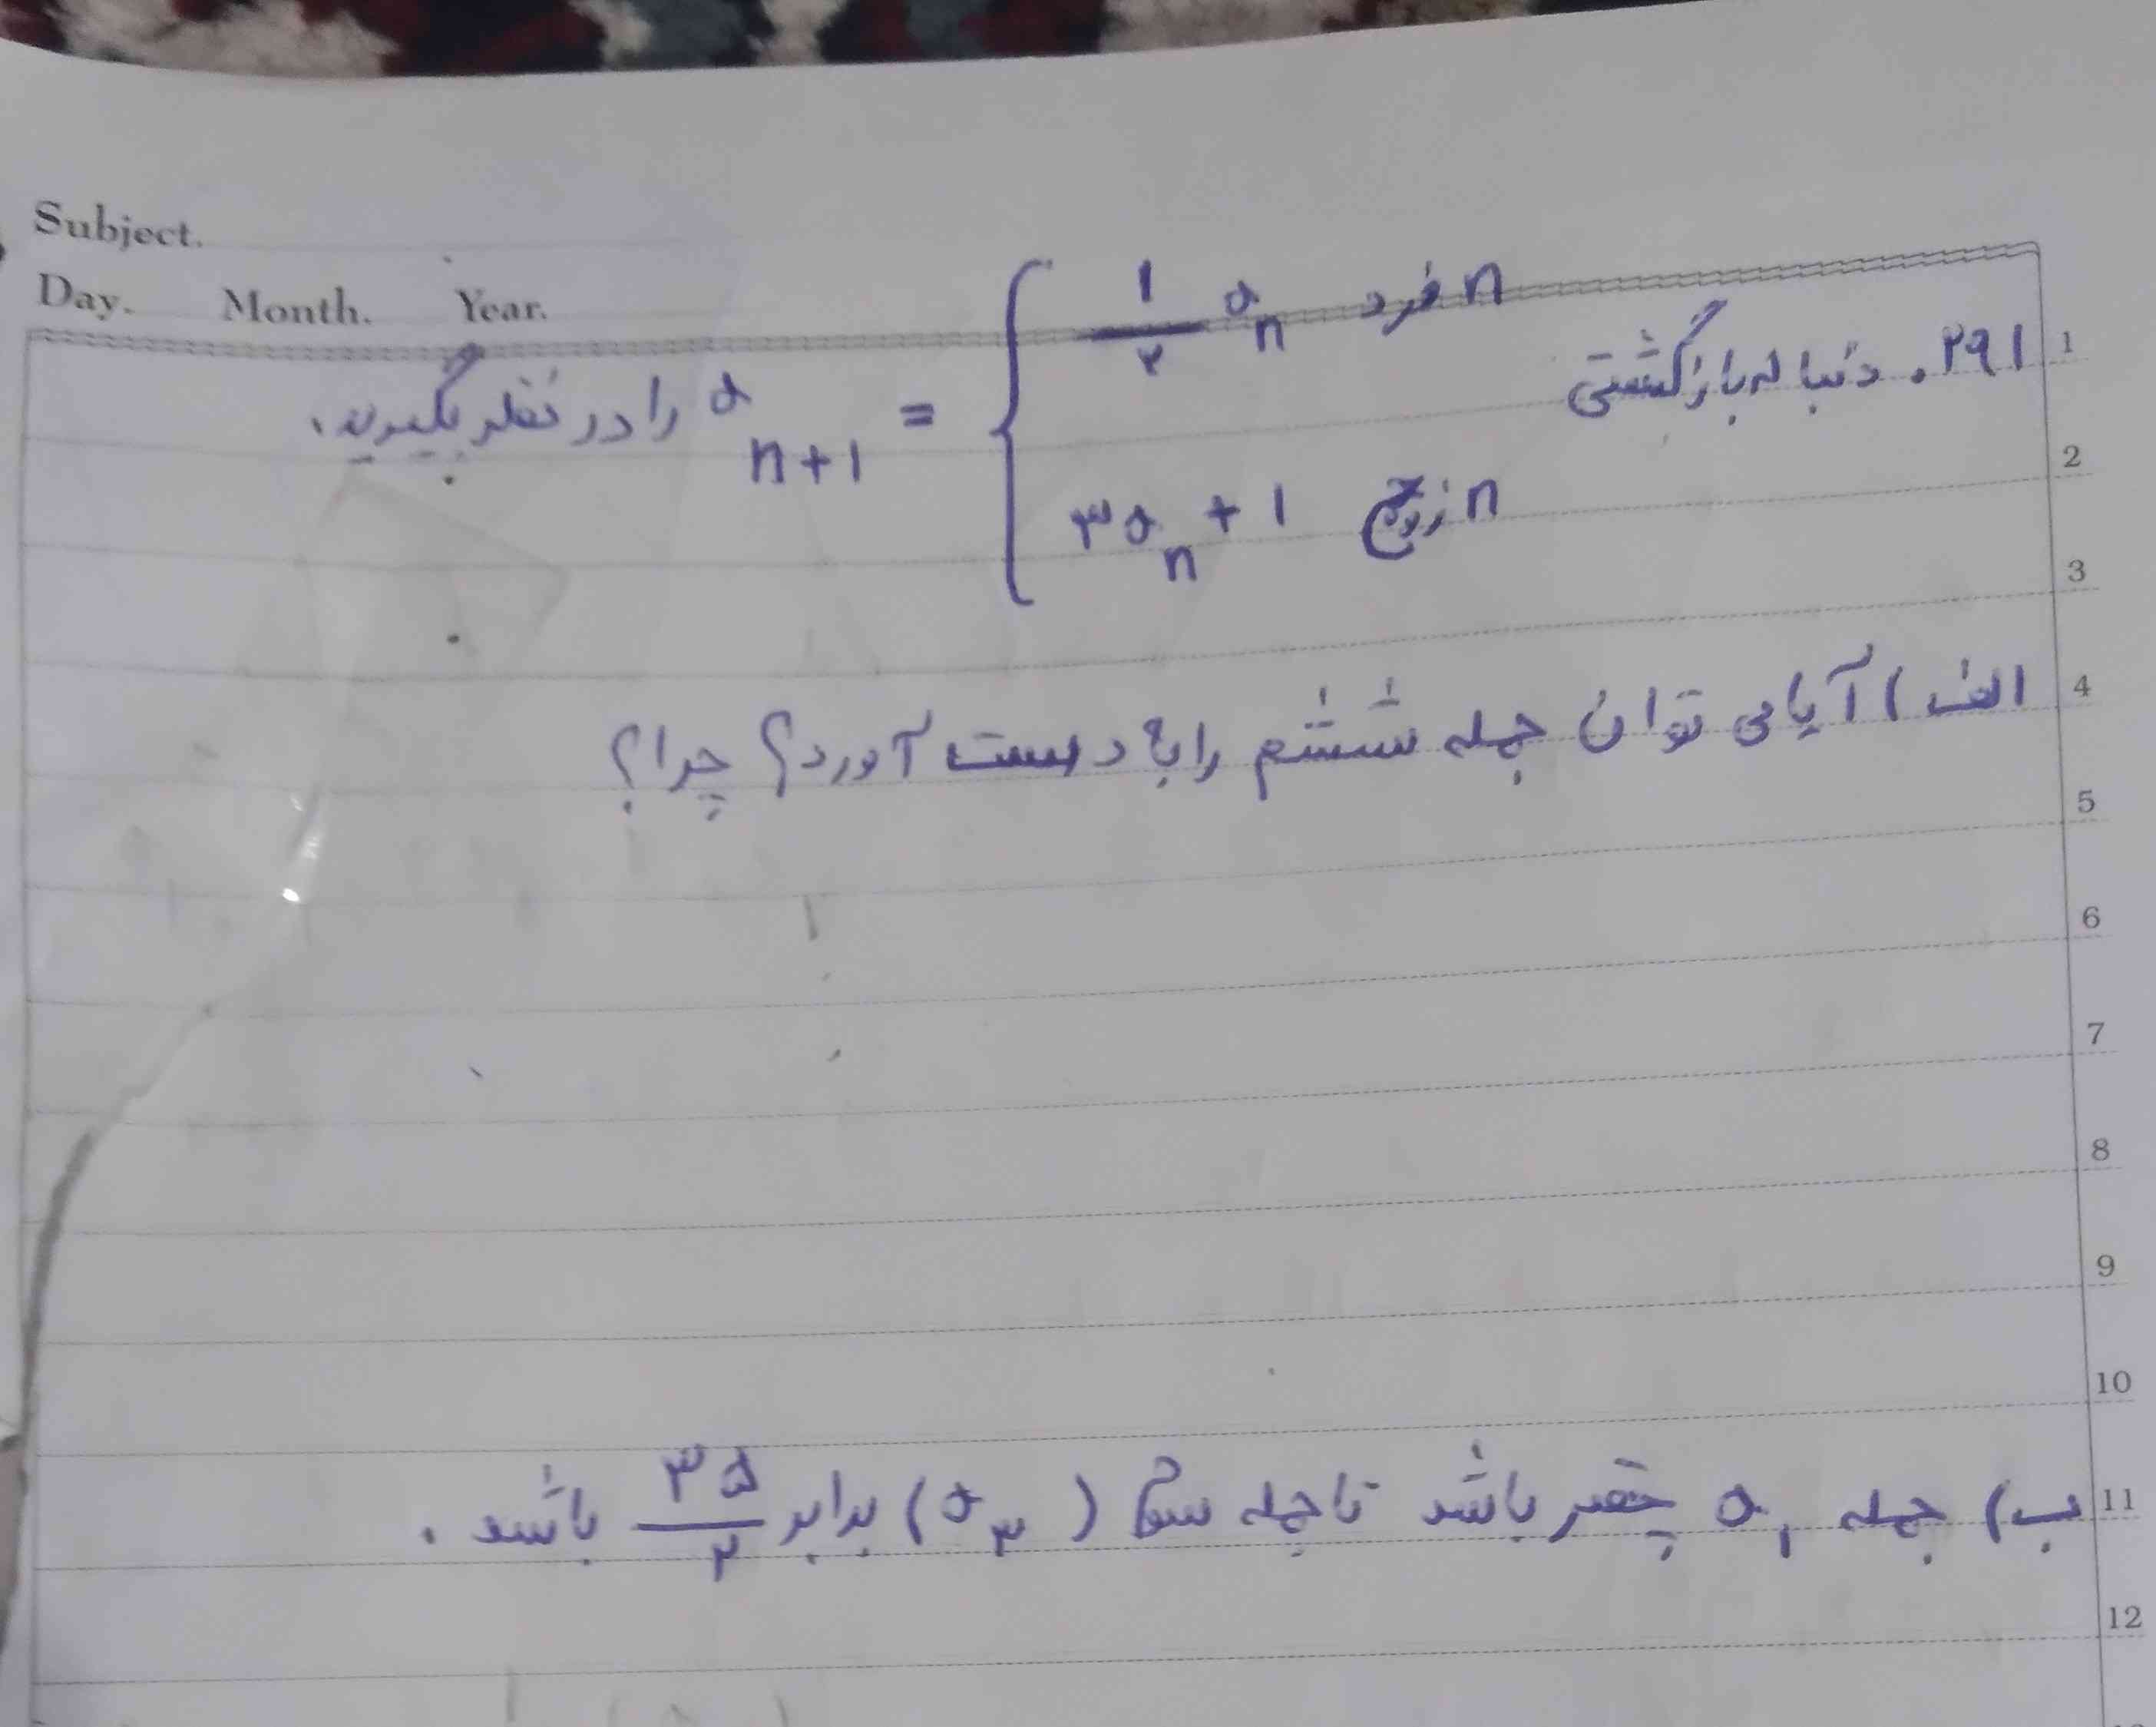 Subject.
Day. Month. Year.
۲۹۱. دنباله بازگشتی a n+1 = { ۱/۲ a n n فرد را در نظر بگیرید.
۳a n + ۱ n زوج
الف) آیا می توان جمله ششم را به دست آورد؟ چرا؟
ب) جمله a۱ چقدر باشد تا جمله سوم (a۳) برابر ۳۵/۲ باشد.
1
2
3
4
5
6
7
8
9
10
11
12